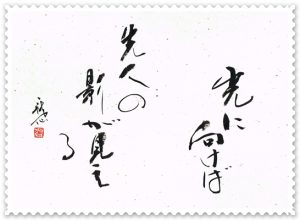 光に
向けば
先人の
影が見え
る